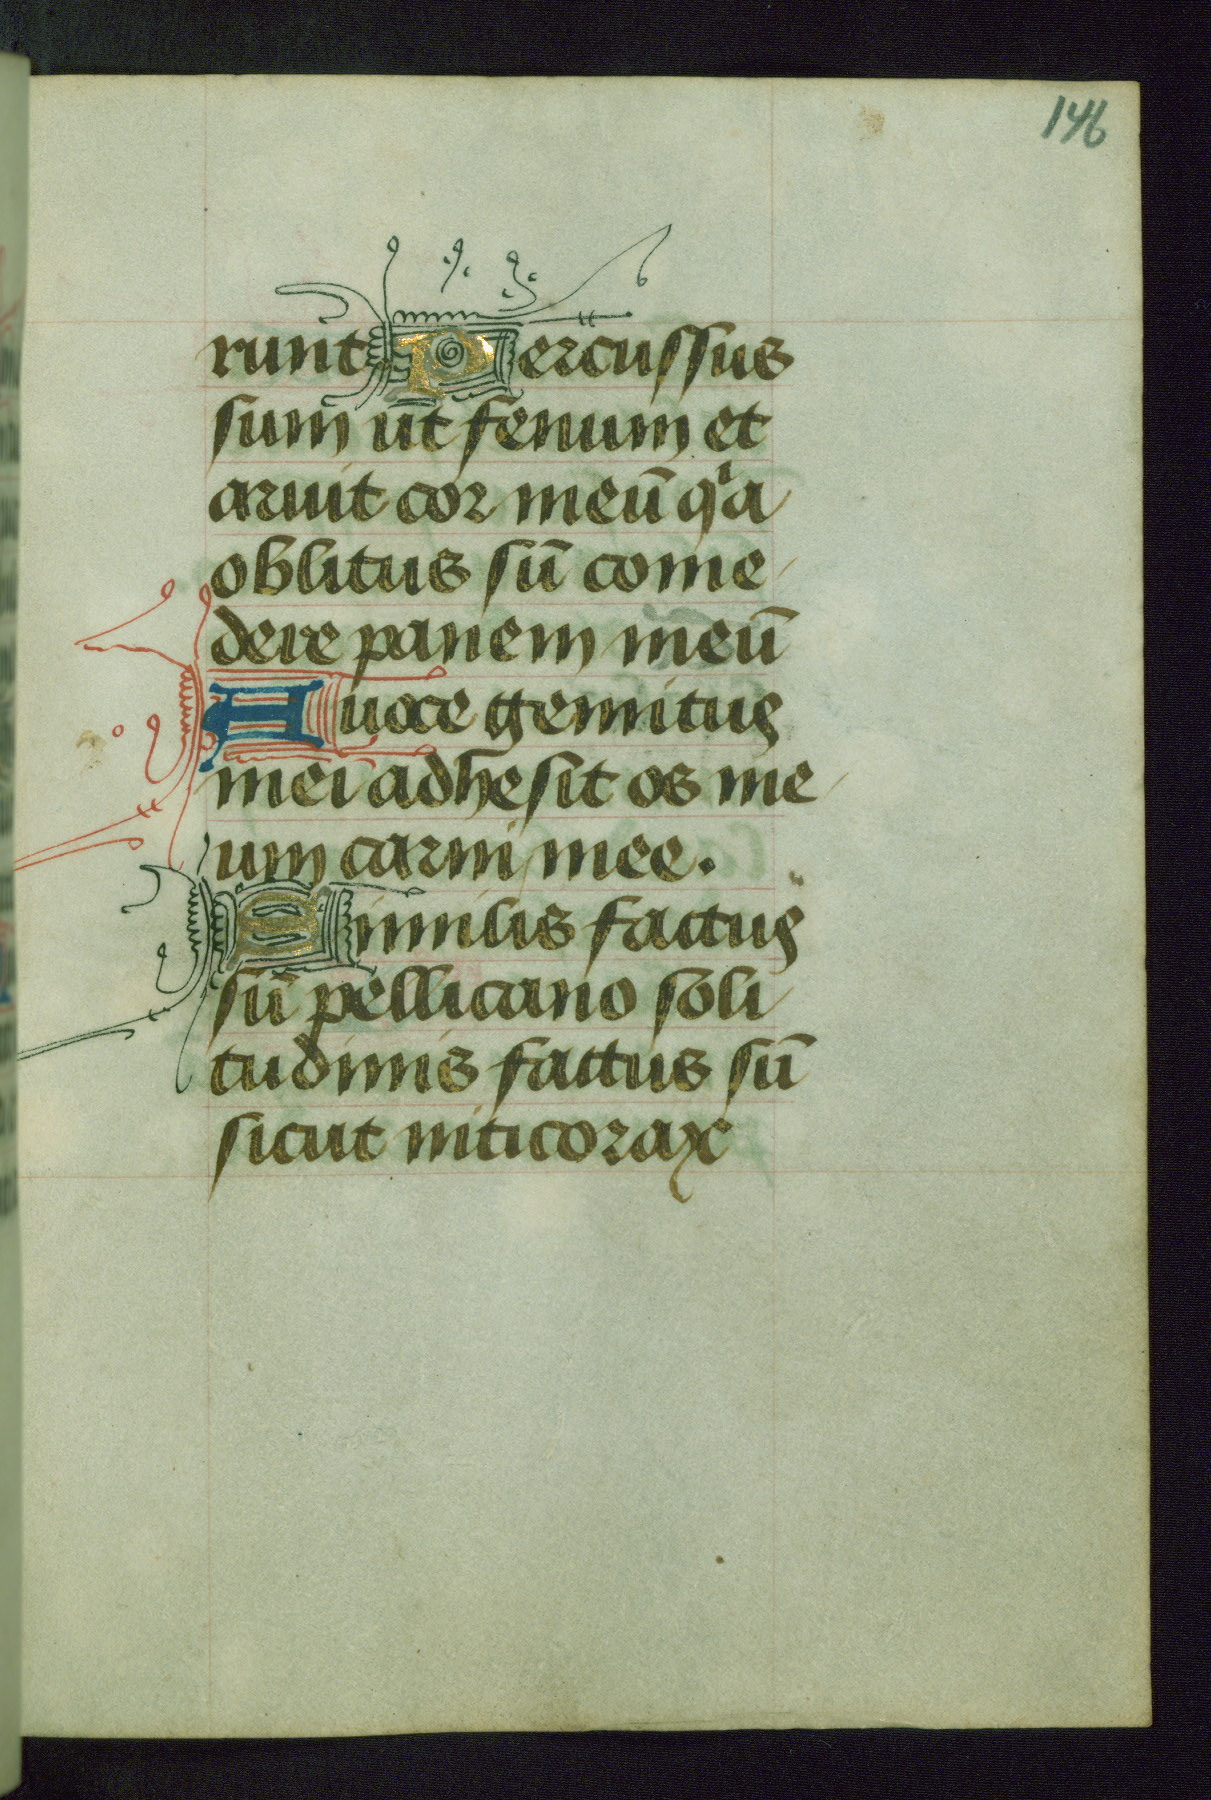 146
runt Percussus
sum ut fenum et
aruit cor meū qͥa
oblitus sū come
dere panem meū
A uoce gemitus
mei adhesit os me
um carni mee.
Similis factus
sū pellicano soli
tudinis factus sū
sicut niticorax